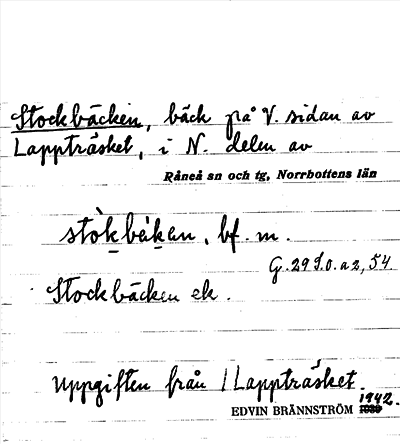 Stockbäcken, bäck på V. sidan av
Lappträsket, i N. delen av
Råneå sn och tg, Norrbottens län
stòkbèk̲an, bf. m.
G. 29 S.o. a 2, 54
Stockbäcken ek.
Uppgiften från / Lappträsket.
1942.
EDVIN BRÄNNSTRÖM 1939